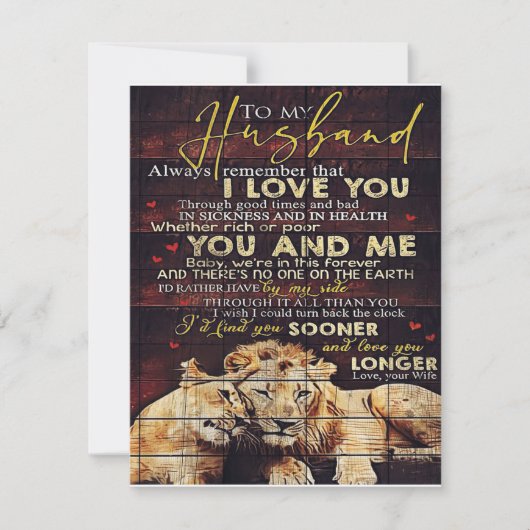 TO MY
Husband
Always remember that
I LOVE YOU
Through good times and bad
IN SICKNESS AND IN HEALTH
Whether rich or poor
YOU AND ME
Baby, we're in this forever
AND THERE'S NO ONE ON THE EARTH
I'D RATHER HAVE by my side
THROUGH IT ALL THAN YOU
I wish I could turn back the clock
I'd find you SOONER
and love you
LONGER
Love, your Wife